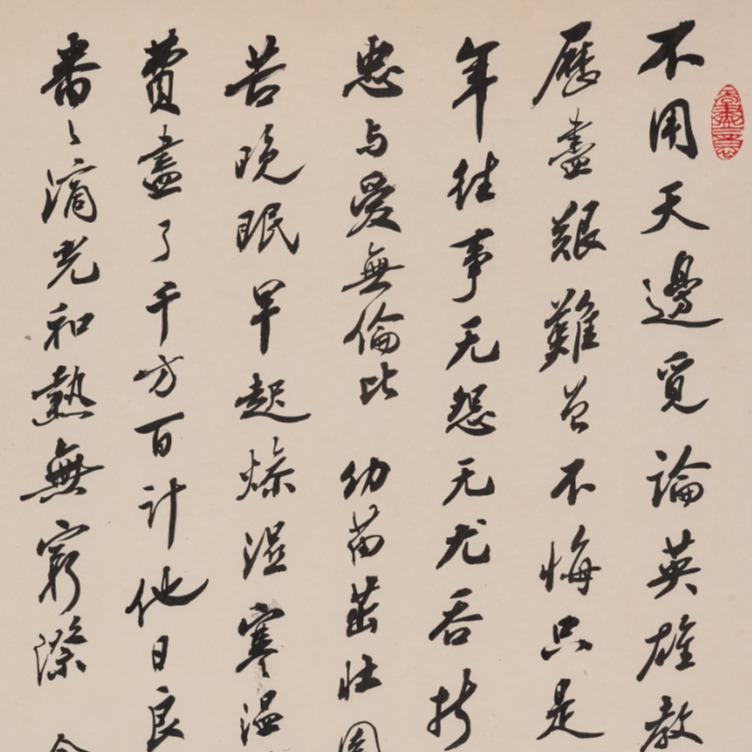 不用天邊覓論英雄教
歷盡艱難曾不悔只是
年往事无怨无尤吞折
忠与愛無倫比 幼苗茁壮園
苦晚眠早起燥湿寒温
費盡了千方百計他日良
番々滴光和熱無窮際